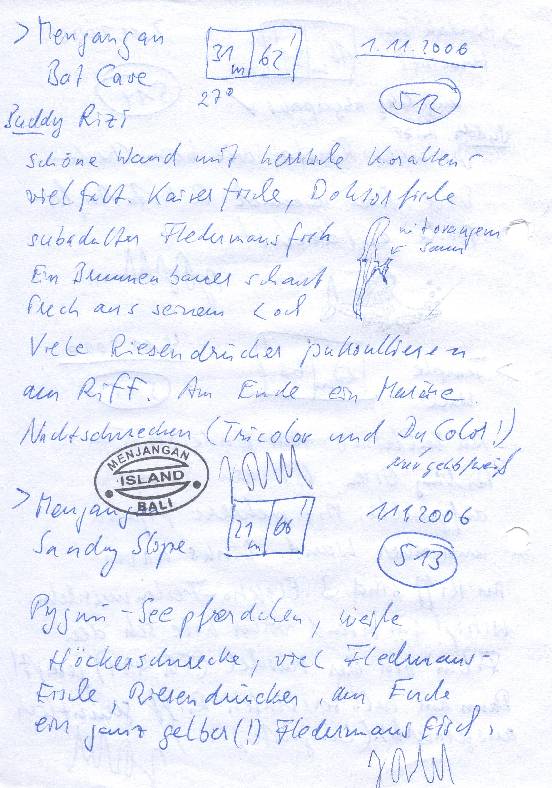 > Menjangan
Bat Cave
31 m 62'
27°
1.11.2006
512
Buddy Rizi
schöne Wand mit herrliche Korallen-
vielfalt. Kaiserfische, Doktorfische
subadulter Fledermausfisch
mit orangem
Saum
Ein Brunnenbauer schaut
frech aus seinem Loch
Viele Riesendrücker patroullieren
am Riff. Am Ende ein Muräne.
Nacktschnecken (Tricolor und DuColor!)
nur gelb weiß
MENJANGAN
ISLAND
BALI
> Menjang
Sandy Slope
21 m 66'
1.11.2006
513
Pygmi-Seepferdchen, weiße
Höckerschnecke, viel Fledermaus-
Fische, Riesendrücker, am Ende
ein ganz gelber(!) Fledermausfisch.